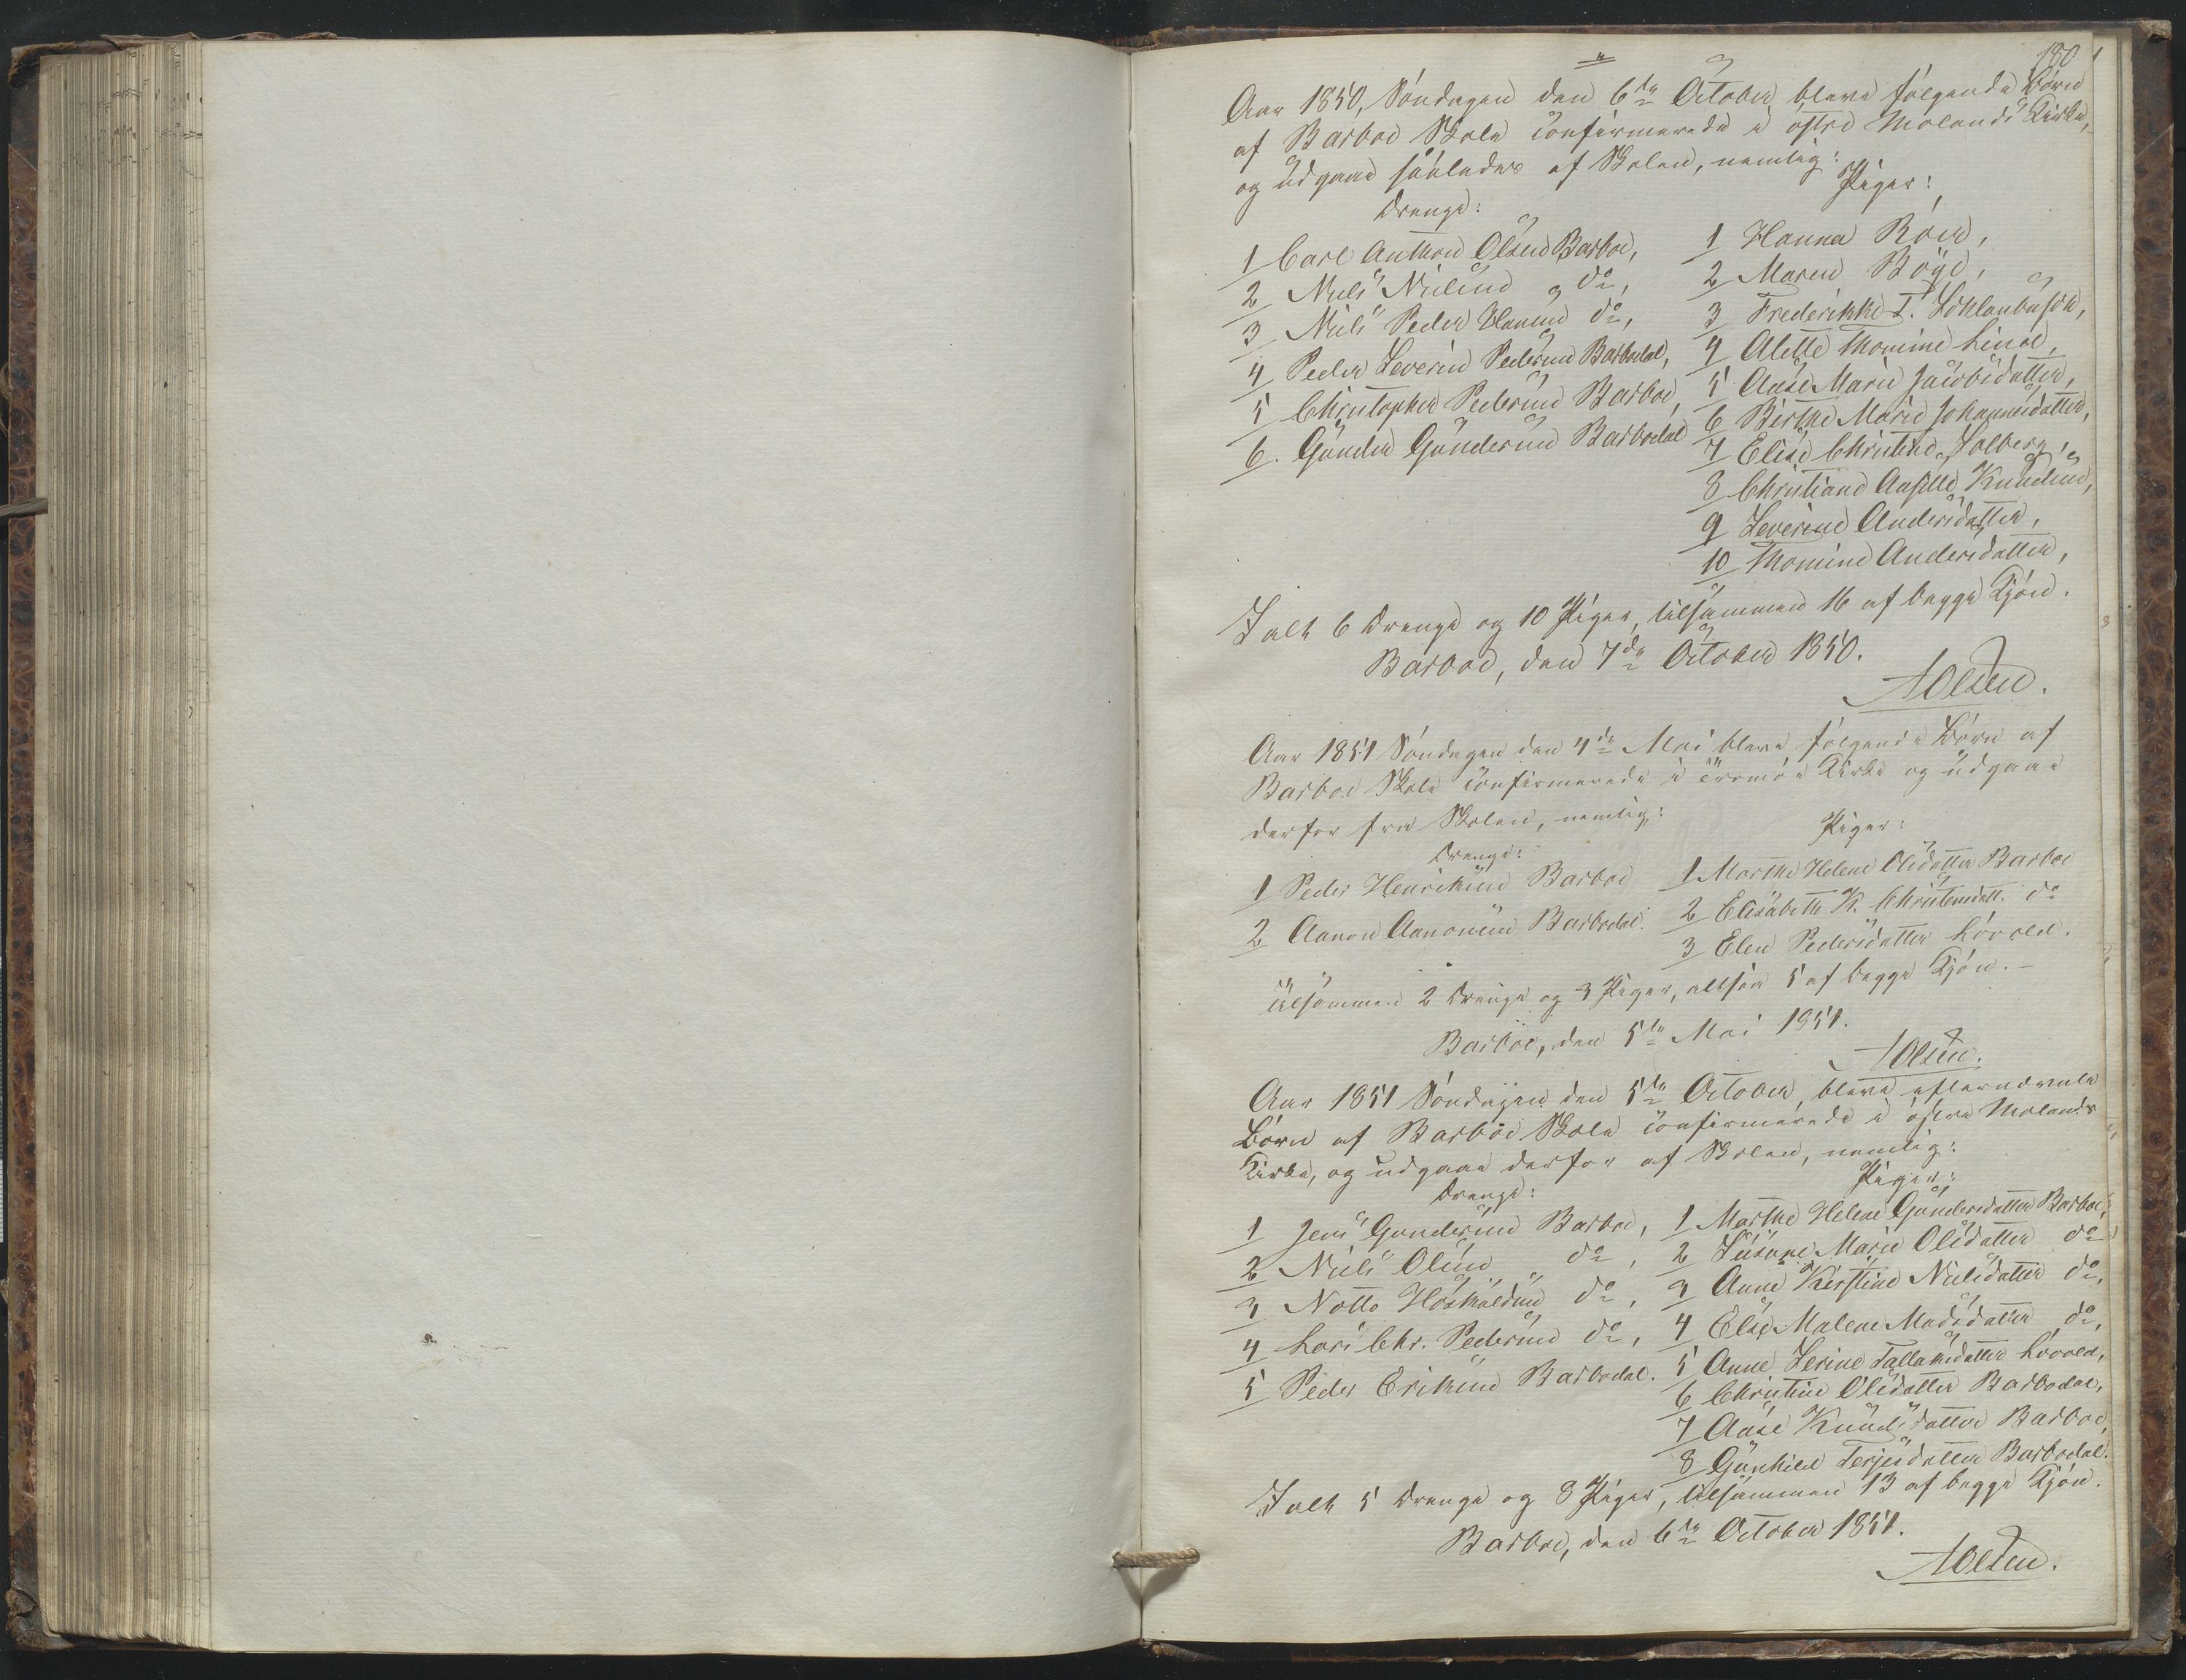 180
Aar 1850, Søndagen den 6te October bleve følgende Børn
af Barboe Skole confirmerede i østre Molands Kirke,
og udgaae saaledes af Skolen, nemlig:
Drenge:
Piger:
1 Carl Anthon Olsen Barboe,
2 Niels Nielsen do,
3 Niels Peder Hansen do,
4 Peder Severin Pedersen Barbodal,
5 Christopher Pedersen Barboe,
6. Gunder Gundersen Barbodal
1 Hanna Röer,
2 Maren Böye,
3 Frederikke T.
4 Alette Thomine Linde,
5 Aase Marie Jacobsdatter,
6 Birthe Marie Johannesdatter,
7 Elise Christine Solberg,
8 Christiane Knudsen,
9 Severine Andersdatter,
10 Thomine Andersdatter,
Ialt 6 Drenge og 10 Piger, tilsammen 16 af begge Kjön.
Barboe, den 7de October 1850.
AOlsen.
Aar 1851 Søndagen den 4de Mai bleve følgende Børn af
Barboe Skole confirmerede i Tromöe Kirke og udgaae
derfor fra Skolen, nemlig:
Drenge:
Piger:
1 Peder Henriksen Barboe
2 Aanon Aanonsen Barbodal.
1 Marthe Helene Olsdatter Barboe
2 Elisabeth K. Christensdatt. do
3 Elen Pedersdatter Lövold.
Tilsammen 2 Drenge og 3 Piger, altsaa 5 af begge Kjön.-
Barboe, den 5te Mai 1851.
AOlsen.
Aar 1851 Søndagen den 5te October, bleve efternævnte
Børn af Barboe Skole confirmerede i østre Molands
Kirke, og udgaae derfor af Skolen, nemlig:
Drenge:
Piger:
1 Jens Gundersen Barboe,
2 Niels Olsen do,
3 Notto Höskuldsen do,
4 Lars Chr. Pedersen do,
5 Peder Eriksen Barbodal.
1 Marthe Helene Gundersdatter Barboe,
2 Susane Marie Olsdatter do
3 Anne Kirstine Nielsdatter do,
4 Else Malene Madsdatter do,
5 Anne Serine Tallaksdatter Lövold,
6 Christine Olsdatter Barbodal,
7 Aase Knudsdatter Barboe,
8 Gunhild Terjesdatter Barbodal.
Ialt 5 Drenge og 8 Piger, tilsammen 13 af begge Kjön.
Barboe, den 6te October 1851.
AOlsen.